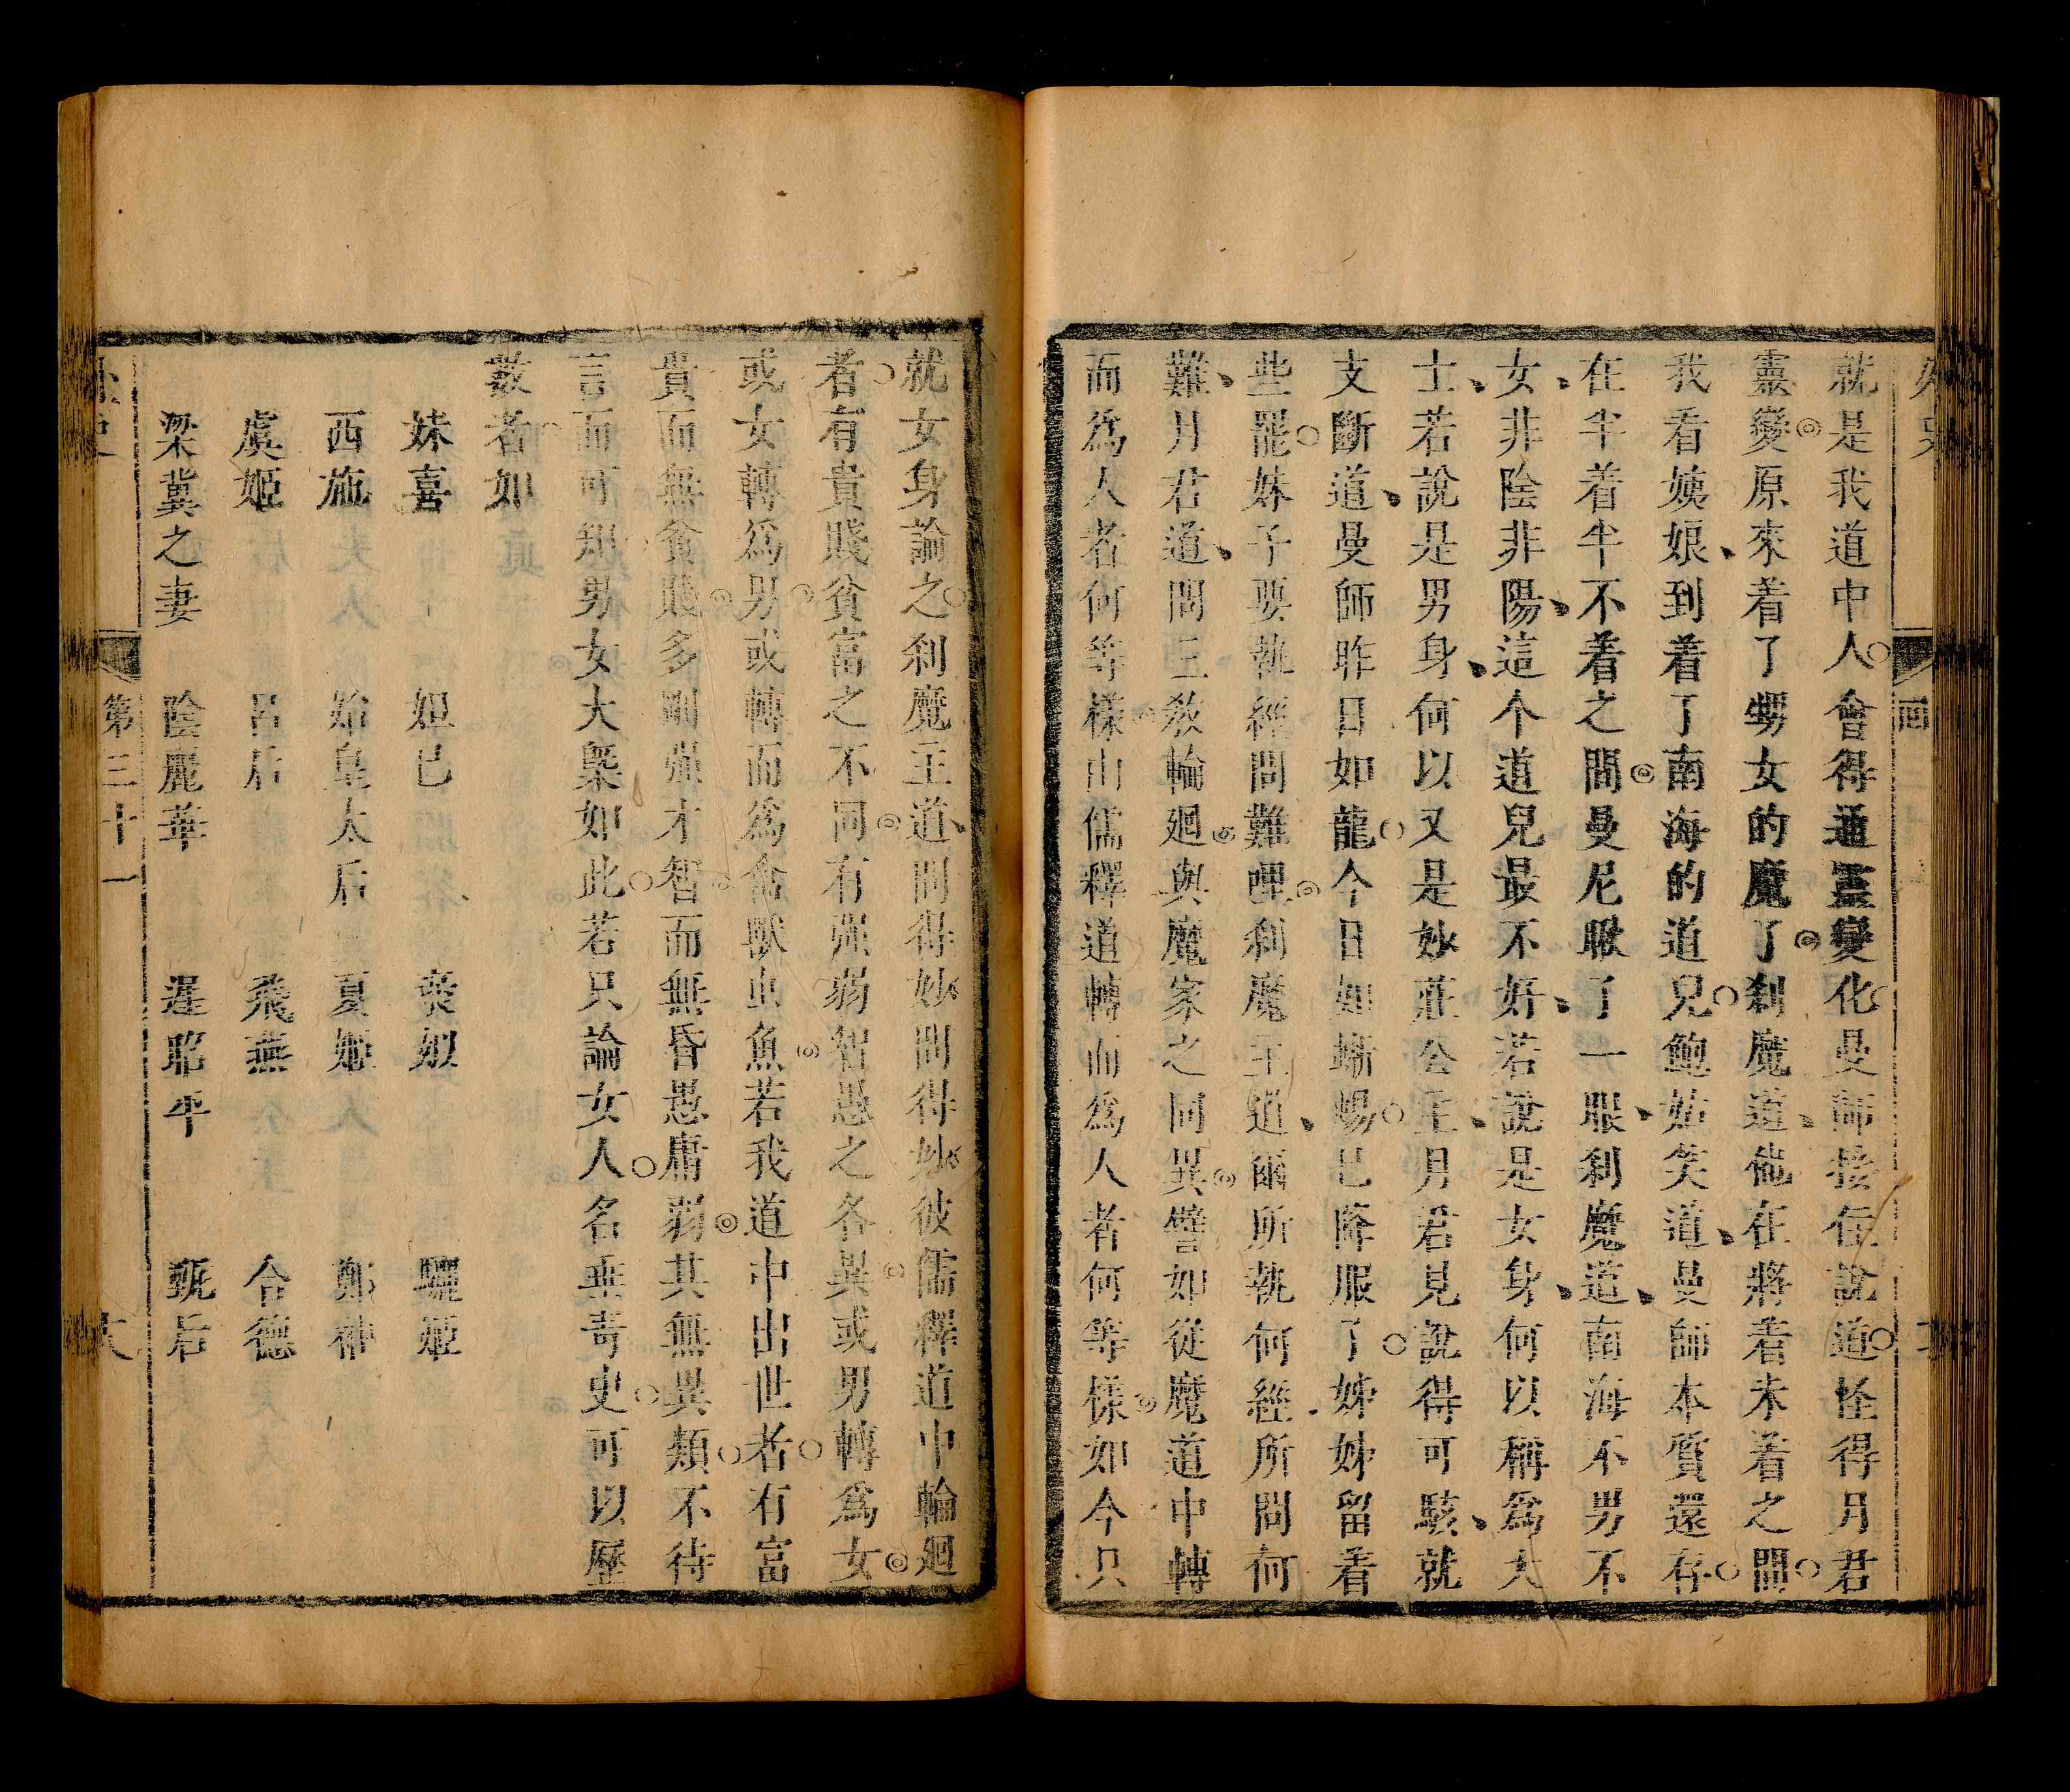 就是我道中人會得通靈變化曼師接任說道怪得月君
靈變原來着了嬲女的魔了刹魔道他在將着未着之間
我看姨娘到着了南海的道兒鮑姑笑道曼師本質還存
在半着半不着之間曼尼瞅了一眼刹魔道南海不男不
女非陰非陽這个道兒最不好若說是女身何以稱爲大
士若說是男身何以又是妙莊公主月君見說得可駭就
支斷道曼師昨日如龍今日如蜥蜴已降服了姊姊留着
些罷妹子要執經問難哩刹魔王道爾所執何經所問何
難月君道問三敎輪廻與魔家之同異譬如從魔道中轉
而爲人者何等樣由儒釋道轉而爲人者何等樣如今只
就女身論之刹魔王道問得妙問得妙彼儒釋道中輪廻
者有貴賤貧富之不同有强弱智愚之各異或男轉爲女
或女轉爲男或轉而爲禽獸虫魚若我道中出世者有富
貴而無貧賤多剛强才智而無昏愚庸弱其無異類不待
言而可知男女大槩如此若只論女人名垂靑史可以歷
數者如
妹喜 妲已 褒姒 驪姬
西施 始皇太后 夏姬 鄭袖
虞姬 呂后 飛燕 合德
梁冀之妻 陰麗華 遲昭平 甄后
第三十一